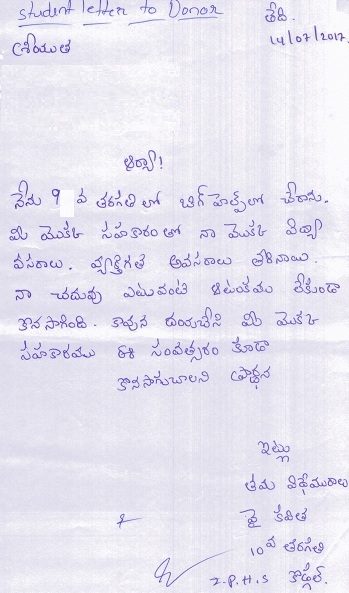 student letter to Donor
తేది.
శ్రీయుత
14/07/2017.
ఆర్యా!
నేను 9 వ తరగతి లో బిగ్ హెల్ప్‌లో చేరాను.
మీ యొక్క సహకారంతో నా యొక్క విద్యా
వసరాలు. వ్యక్తిగత అవసరాలు తీరినాయి.
నా చదువు ఎటువంటి ఆటంకము లేకుండా
కొనసాగింది. కావున దయచేసి మీ యొక్క
సహకారము ఈ సంవత్సరం కూడా
కొనసాగుచాలని ప్రార్థన
ఇట్లు
తమ విధేయురాలు
కవిత
10వ తరగతి
Z.P.H.S